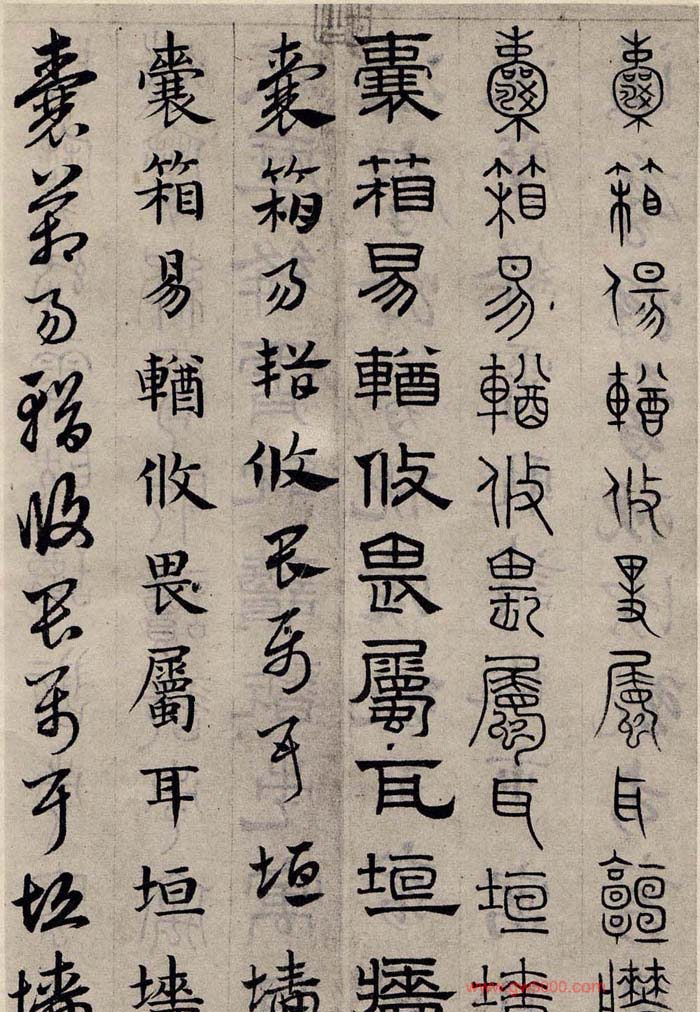 囊箱易輶攸畏屬耳垣牆
囊箱易輶攸畏屬耳垣墻
囊箱易輶攸畏屬耳垣牆
囊箱易輶攸畏屬耳垣墻
囊箱易輶攸畏屬耳垣墻
囊箱易輶攸畏屬耳垣墻